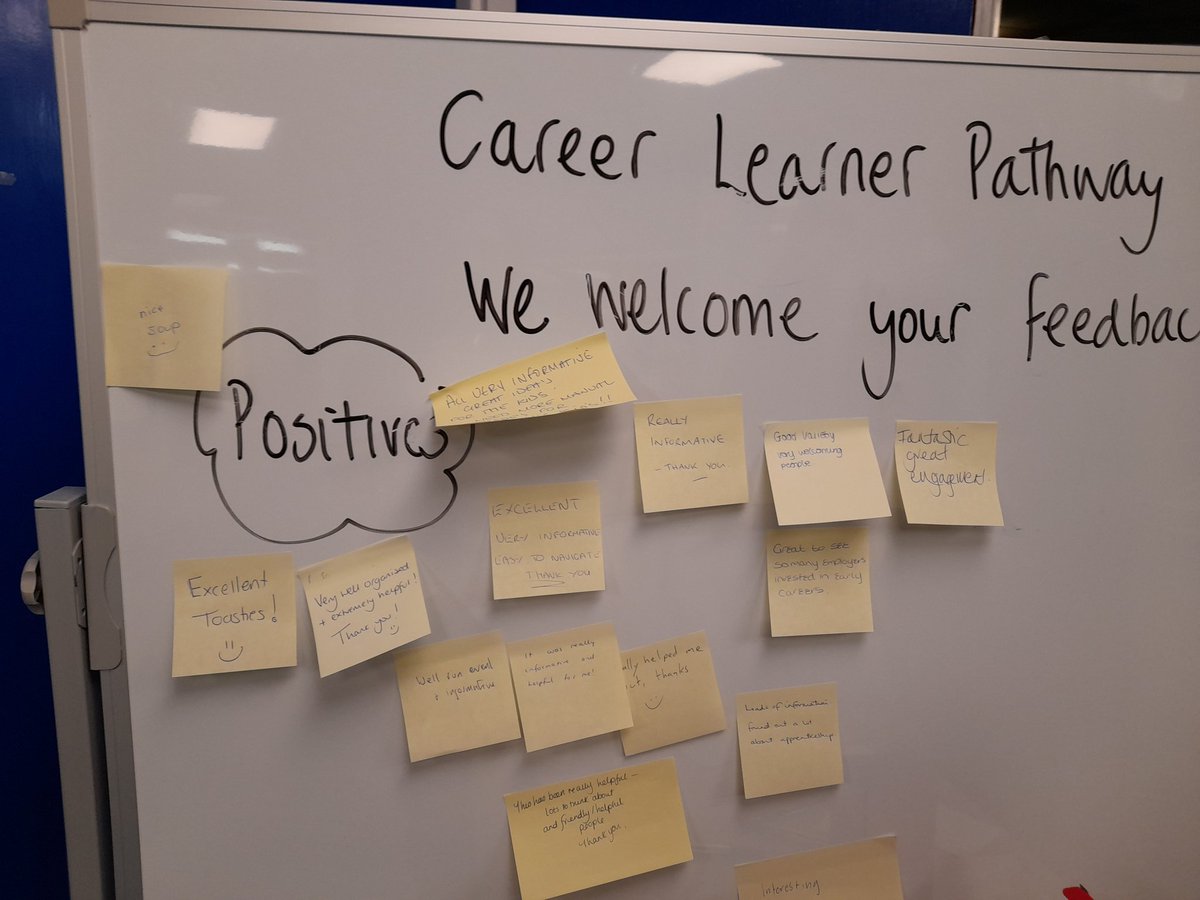 Career Learner Pathway
We welcome your feedbac
nice
soup
Positives
ALL VERY INFORMATIVE
GREAT IDEA'S
FOR THE KIDS.
MORE MANUAL
REALLY
INFORMATIVE
- THANK YOU.
Good variety
very welcoming
people
Fantastic
great
engagement.
EXCELLENT
VERY INFORMATIVE
EASY TO NAVIGATE
THANK YOU
Great to see
so many Employers
invested in Early
Careers.
Excellent
Toasties!
Very well organised
+ extremely helpful!
Thank you!
Well run event
+ informative
It was really
informative and
helpful for me!
ally helped me
thanks
Loads of information
found out a lot
about apprenticeship
This has been really helpful -
lots to think about
and friendly/helpful
people
Thank you.
Interesting